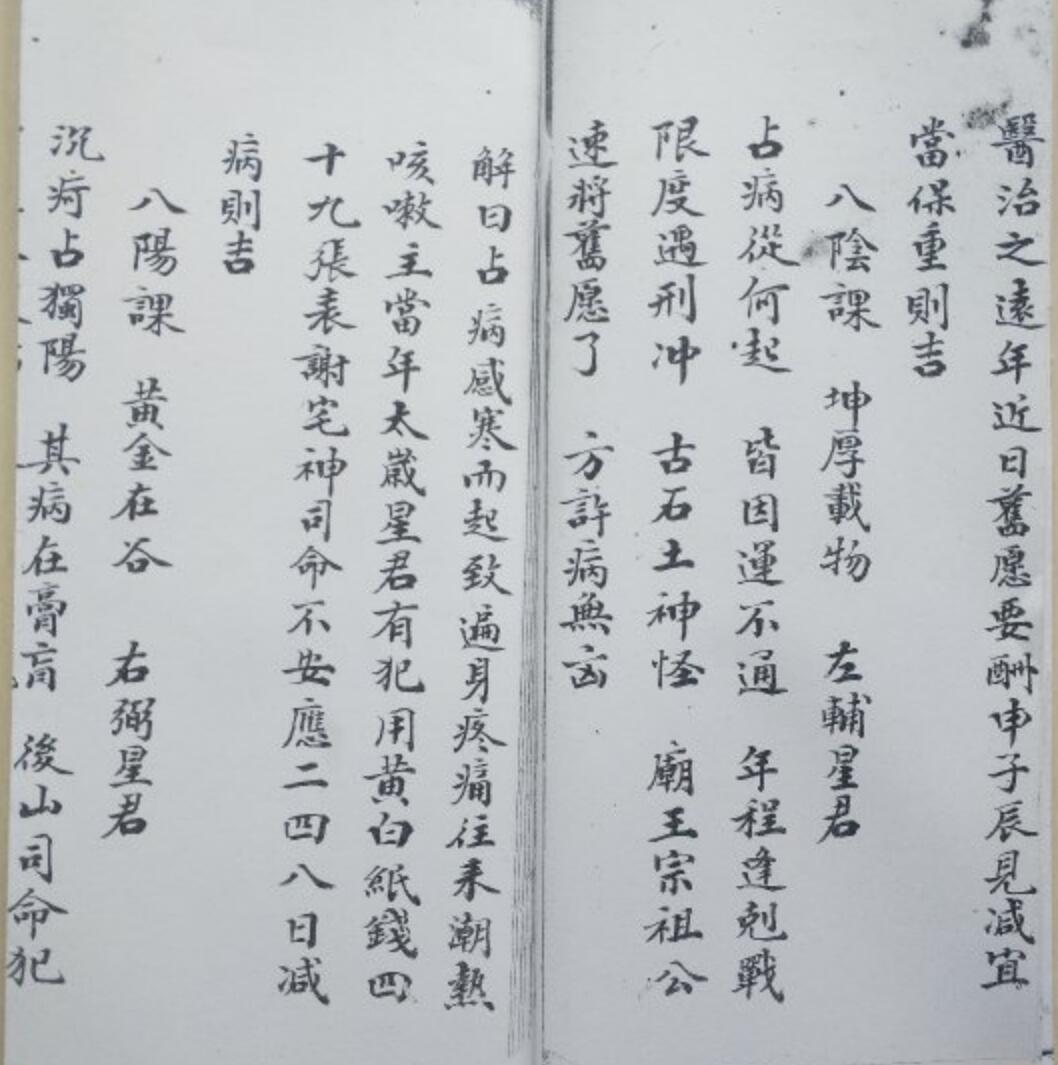 醫治之遠年近日舊愿要酬申子辰見减宜
當保重則吉
八陰課 坤厚載物 左輔星君
占病從何起 皆因運不通 年程逢剋戰
限度遇刑冲 古石土神怪 廟王宗祖公
速將舊愿了 方許病無凶
解曰占病感寒而起致遍身疼痛往来潮熱
咳嗽主當年太歲星君有犯用黄白紙錢四
十九張表謝宅神司命不安應二四八日减
病則吉
八陽課 黄金在谷 右弼星君
沉疴占獨陽 其病在膏肓 後山司命犯